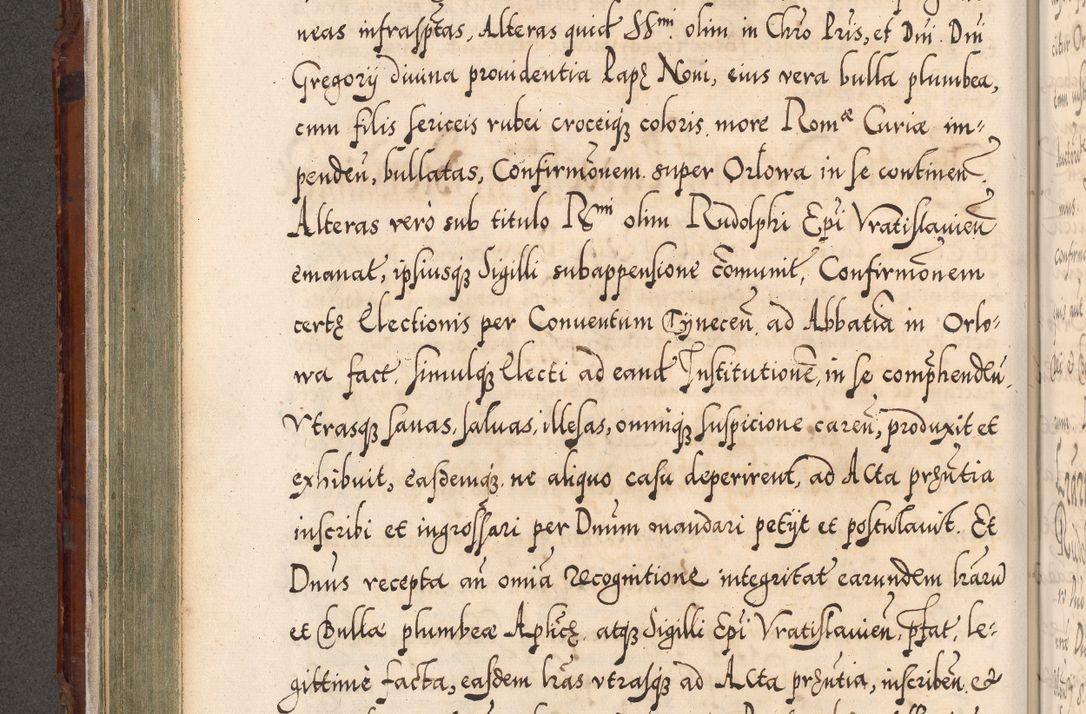 neas infrasptas, Alteras quid SSmi. olim in Chro Pris, et Dni. Dni
Gregorÿ diuina prouidentia Papę Noni, eius vera bulla plumbea,
cum filis sericeis rubei croceiqꝫ coloris more Romæ Curiæ im=
penden̄, bullatas, Confirmōnem super Orlowa in se continen̄.
Alteras verò sub titulo Rmi olim Rudolphi Epī Vratislauien̄
emanat, ipsiusqꝫ Sigilli subappensione cōmunit, Confirmōnem
certę Electionis per Conuentum Tÿnecen̄. ad Abbatiā in Orlo=
wa fact. simulqꝫ Electi ad eand Institutionē, in se comp̄henden̄.
Vtrasqꝫ sanas, saluas, illesas, omniqꝫ suspicione caren̄, produxit et
exhibuit, easdemqꝫ ne aliquo casu deperirent, ad Acta prꝫn̄tia
inscribi et ingrossari per Dnūm mandari petÿt et postulauit. Et
Dnūs recepta an̄ omīa recognitione integritat earundem lr̄arū
et Bullæ plumbeæ Apl̄icę, atqꝫ Sigilli Epī Vratislauien̄, p̄fat, le=
gittimè facta, easdem lr̄as vtrasqꝫ ad Acta prꝫn̄tia, inscriben̄. et